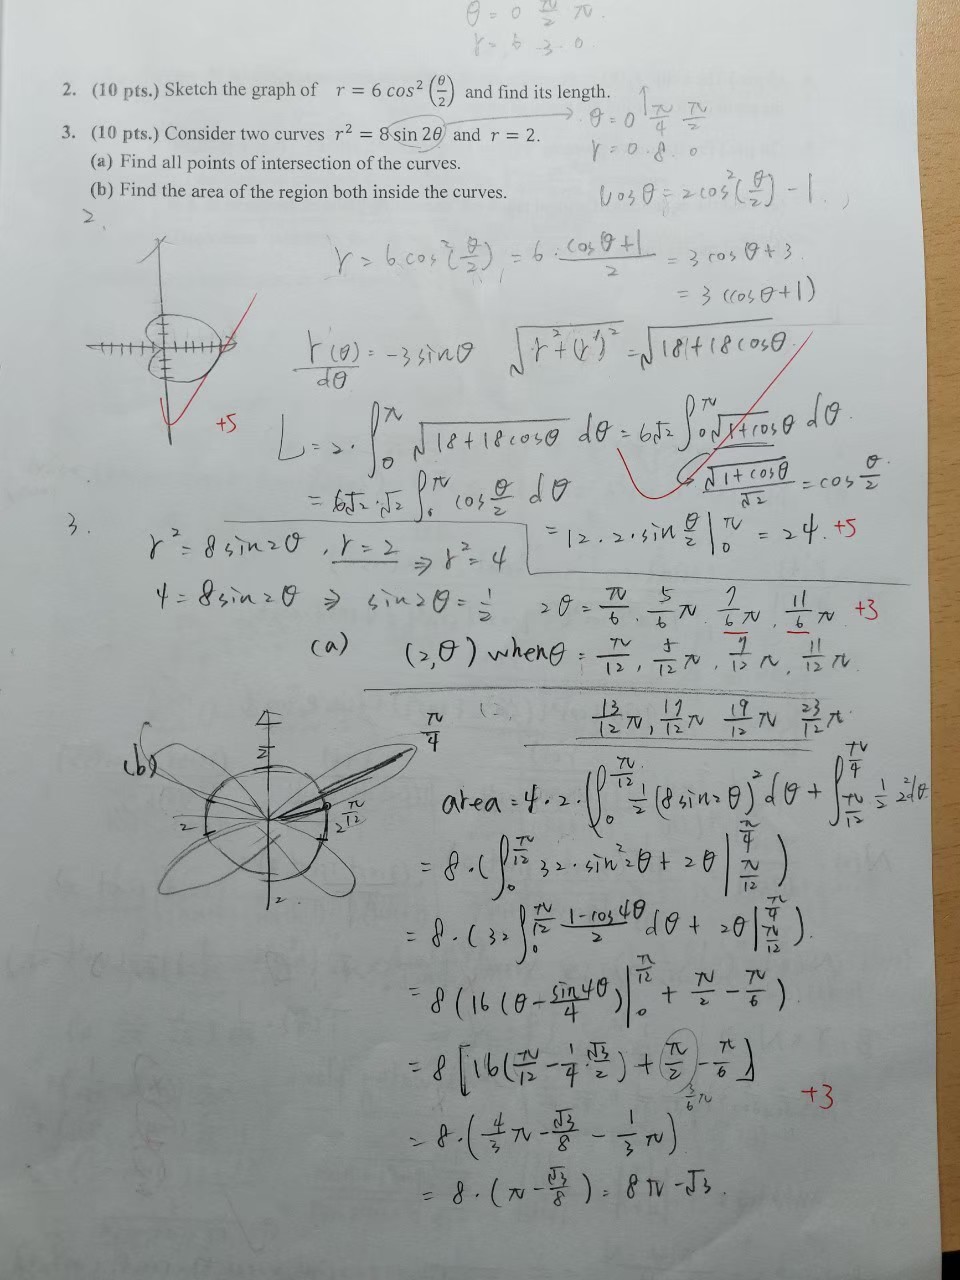 θ = 0 π/2 π.
r = 6 3 0
2. (10 pts.) Sketch the graph of r = 6 cos² (θ/2) and find its length.
3. (10 pts.) Consider two curves r² = 8 sin 2θ and r = 2.
θ = 0 π/4 π/2
(a) Find all points of intersection of the curves.
r = 0 . 8 . 0
(b) Find the area of the region both inside the curves.
cos θ = 2cos²(θ/2) - 1
2.
r = 6 cos²(θ/2) = 6 · (cos θ + 1)/2 = 3 cos θ + 3
= 3 (cos θ + 1)
r(θ)/dθ = -3 sin θ √(r² + (r')²) = √(18 + 18 cos θ)
+5
L = 2 · ∫₀^π √(18 + 18 cos θ) dθ = 6√2 ∫₀^π √(1 + cos θ) dθ
√(1 + cos θ)/√2 = cos θ/2
= 6√2 · √2 ∫₀^π cos θ/2 dθ
= 12 · 2 · sin θ/2 |₀^π = 24. +5
3.
r² = 8 sin 2θ , r = 2 ⇒ r² = 4
4 = 8 sin 2θ ⇒ sin 2θ = 1/2 2θ = π/6 , 5/6 π , 7/6 π , 11/6 π +3
(a) (2, θ) when θ = π/12 , 5/12 π , 7/12 π , 11/12 π
13/12 π, 17/12 π 19/12 π 23/12 π
(b)
4
2
π/4
π/12
2
2
2
area = 4 · 2 · (∫₀^(π/12) 1/2 (8 sin 2θ)² dθ + ∫_(π/12)^(π/4) 1/2 2² dθ
= 8 · (∫₀^(π/12) 32 · sin² 2θ + 2θ |_(π/12)^(π/4) )
= 8 · (32 ∫₀^(π/12) (1 - cos 4θ)/2 dθ + 2θ |_(π/12)^(π/4) ).
= 8 (16 (θ - sin 4θ/4) |₀^(π/12) + π/2 - π/6 )
= 8 [16 (π/12 - 1/4 · √3/2) + π/2 - π/6 ]
3/6 π
+3
= 8 · (4/3 π - √3/8 - 1/3 π)
= 8 · (π - √3/8) = 8π - √3.